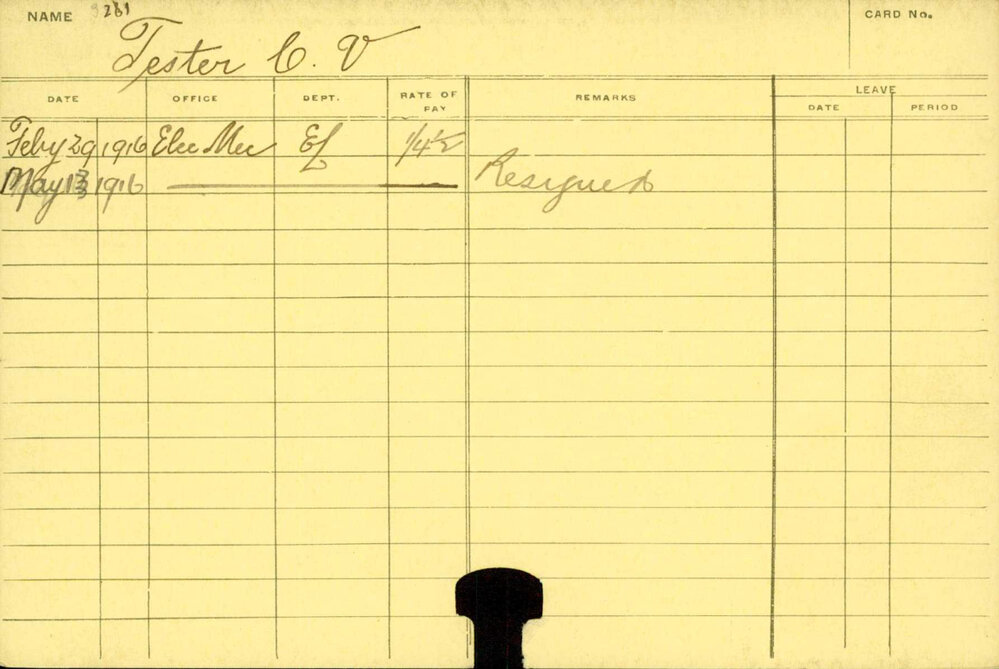 NAME 3281 CARD No.
Tester C. V
DATE OFFICE DEPT. RATE OF PAY REMARKS LEAVE
DATE PERIOD
Feby 29 1916 Elec Mec EL 1/4½
May 13 1916 Resigned